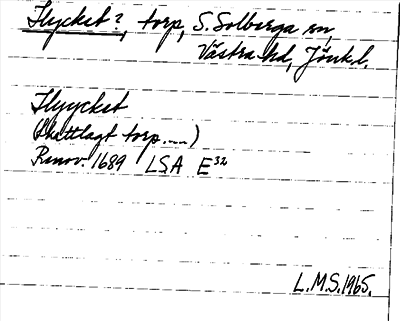 Flycket?, torp, S. Solberga sn,
Västra hd, Jönk.l.
Flyycket
(skattlagt torp....)
Renov. 1689 LSA E³²
L.M.S. 1965.